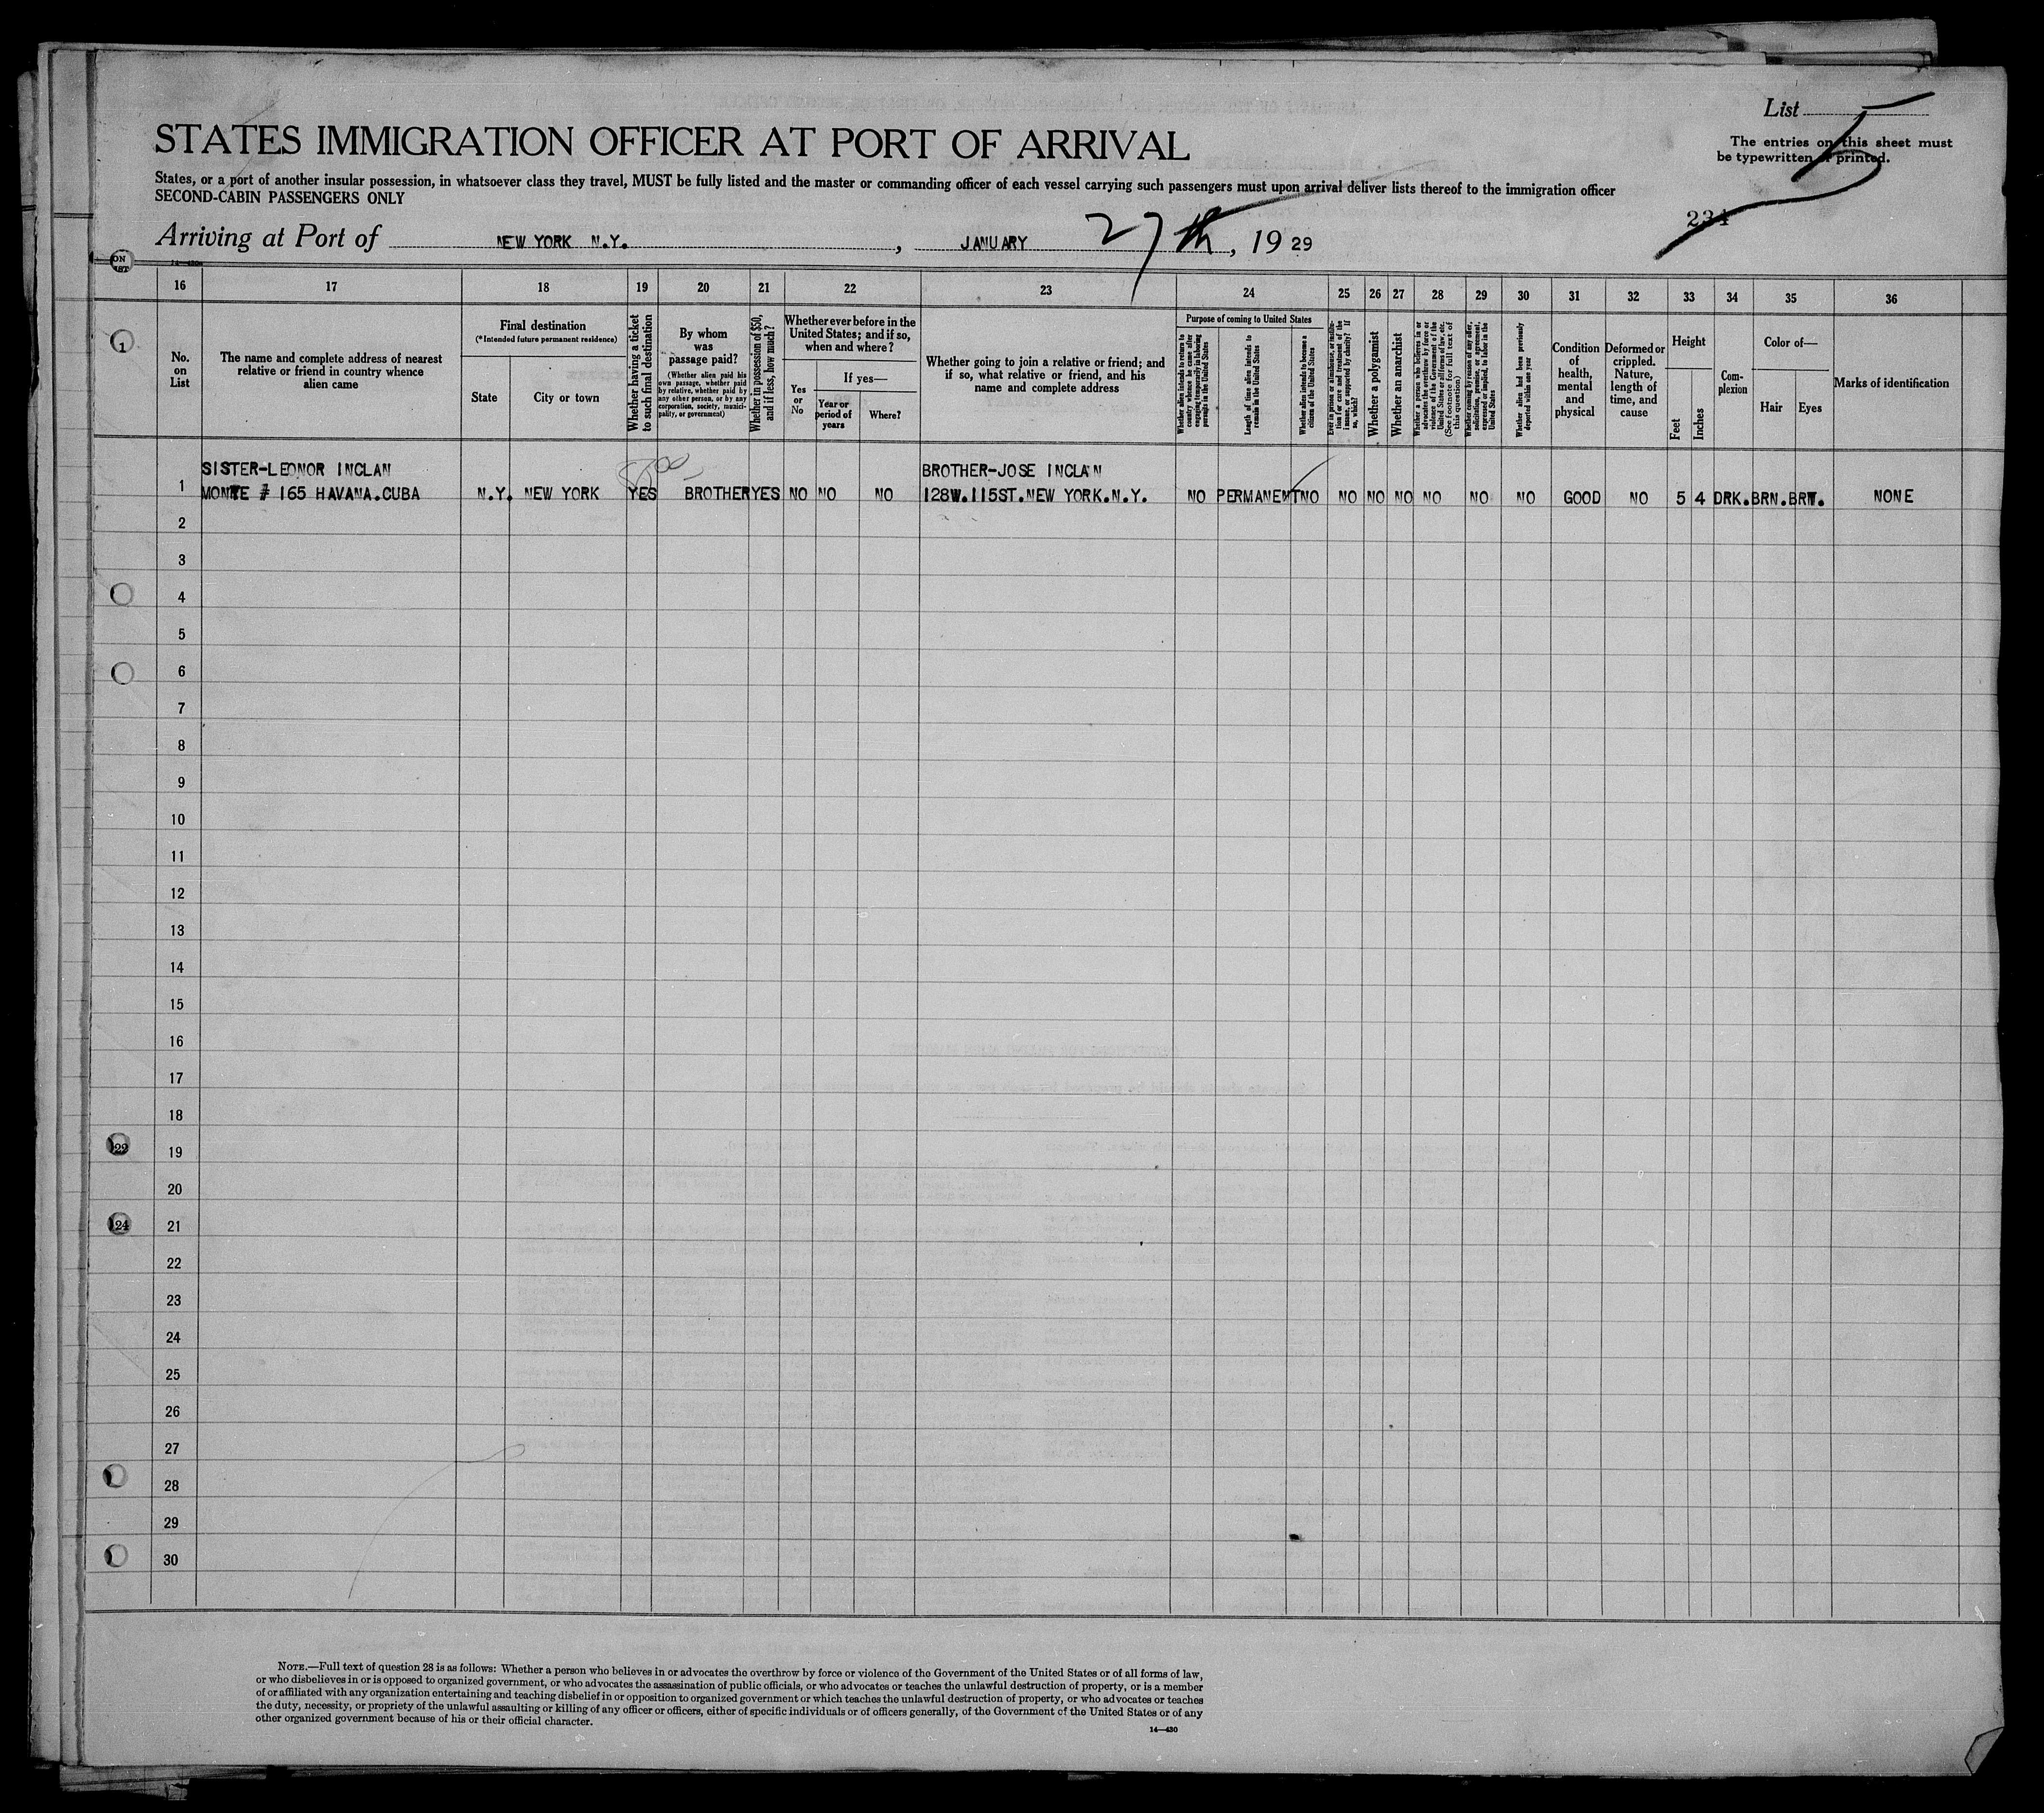 List 5
STATES IMMIGRATION OFFICER AT PORT OF ARRIVAL
The entries on this sheet must
be typewritten or printed.
States, or a port of another insular possession, in whatsoever class they travel, MUST be fully listed and the master or commanding officer of each vessel carrying such passengers must upon arrival deliver lists thereof to the immigration officer
SECOND-CABIN PASSENGERS ONLY
234
Arriving at Port of NEW YORK N.Y., JANUARY 27th, 19 29
16 17 18 19 20 21 22 23 24 25 26 27 28 29 30 31 32 33 34 35 36
No.
on
List
The name and complete address of nearest
relative or friend in country whence
alien came
Final destination
(*Intended future permanent residence)
State
City or town
Whether having a ticket
to such final destination
By whom
was
passage paid?
(Whether alien paid his
own passage, whether paid
by relative, whether paid by
any other person, or by any
corporation, society, munici-
pality, or government)
Whether in possession of $50,
and if less, how much?
Whether ever before in the
United States; and if so,
when and where?
Yes
or
No
If yes—
Year or
period of
years
Where?
Whether going to join a relative or friend; and
if so, what relative or friend, and his
name and complete address
Purpose of coming to United States
Whether alien intends to return to
country whence he came after
engaging temporarily in laboring
pursuits in the United States
Length of time alien intends to
remain in the United States
Whether alien intends to become a
citizen of the United States
Ever in prison or almshouse, or institu-
tion for care and treatment of the
insane, or supported by charity? If
so, which?
Whether a polygamist
Whether an anarchist
Whether a person who believes in or
advocates the overthrow by force or
violence of the Government of the
United States or all forms of law, etc.
(See footnote for full text of
this question)
Whether coming by reason of any offer,
solicitation, promise, or agreement,
expressed or implied, to labor in the
United States
Whether alien had been previously
deported within one year
Condition
of
health,
mental
and
physical
Deformed or
crippled.
Nature,
length of
time, and
cause
Height
Feet
Inches
Com-
plexion
Color of—
Hair
Eyes
Marks of identification
SISTER-LEONOR INCLAN BROTHER-JOSE INCLAN
1 MONTE # 165 HAVANA.CUBA N.Y. NEW YORK YES BROTHER YES NO NO NO 128W.115ST.NEW YORK.N.Y. NO PERMANENT NO NO NO NO NO NO NO GOOD NO 5 4 DRK. BRN. BRW. NONE
2
3
4
5
6
7
8
9
10
11
12
13
14
15
16
17
18
19
20
21
22
23
24
25
26
27
28
29
30
NOTE.—Full text of question 28 is as follows: Whether a person who believes in or advocates the overthrow by force or violence of the Government of the United States or of all forms of law,
or who disbelieves in or is opposed to organized government, or who advocates the assassination of public officials, or who advocates or teaches the unlawful destruction of property, or is a member
of or affiliated with any organization entertaining and teaching disbelief in or opposition to organized government or which teaches the unlawful destruction of property, or who advocates or teaches
the duty, necessity, or propriety of the unlawful assaulting or killing of any officer or officers, either of specific individuals or of officers generally, of the Government of the United States or of any
other organized government because of his or their official character.
14—430